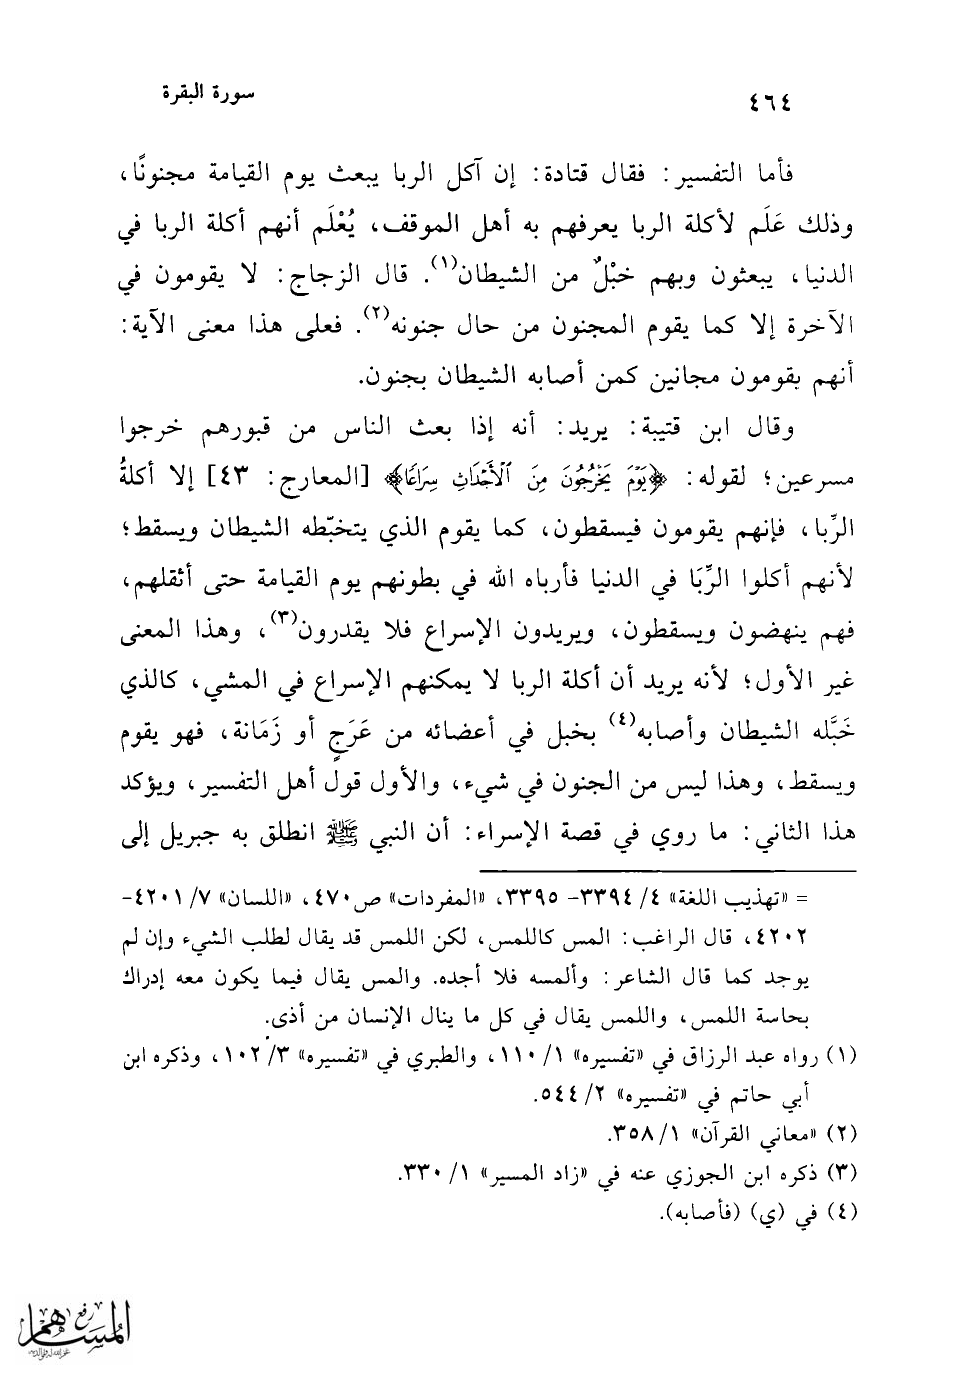 ٤٦٤
سورة البقرة
فأما التفسير: فقال قتادة: إن آكل الربا يبعث يوم القيامة مجنونًا،
وذلك عَلَم لأكلة الربا يعرفهم به أهل الموقف، يُعْلَم أنهم أكلة الربا في
الدنيا، يبعثون وبهم خبْلٌ من الشيطان(١). قال الزجاج: لا يقومون في
الآخرة إلا كما يقوم المجنون من حال جنونه(٢). فعلى هذا معنى الآية:
أنهم يقومون مجانين كمن أصابه الشيطان بجنون.
وقال ابن قتيبة: يريد: أنه إذا بعث الناس من قبورهم خرجوا
مسرعين؛ لقوله: ﴿يَوْمَ يَخْرُجُونَ مِنَ ٱلْأَجْدَاثِ سِرَاعًا﴾ [المعارج: ٤٣] إلا أكلةُ
الرِّبا، فإنهم يقومون فيسقطون، كما يقوم الذي يتخبّطه الشيطان ويسقط؛
لأنهم أكلوا الرِّبَا في الدنيا فأرباه الله في بطونهم يوم القيامة حتى أثقلهم،
فهم ينهضون ويسقطون، ويريدون الإسراع فلا يقدرون(٣)، وهذا المعنى
غير الأول؛ لأنه يريد أن أكلة الربا لا يمكنهم الإسراع في المشي، كالذي
خَبَّله الشيطان وأصابه(٤) بخبل في أعضائه من عَرَجٍ أو زَمَانة، فهو يقوم
ويسقط، وهذا ليس من الجنون في شيء، والأول قول أهل التفسير، ويؤكد
هذا الثاني: ما روي في قصة الإسراء: أن النبي ﷺ انطلق به جبريل إلى
= «تهذيب اللغة» ٤/ ٣٣٩٤- ٣٣٩٥، «المفردات» ص٤٧٠، «اللسان» ٧/ ٤٢٠١-
٤٢٠٢، قال الراغب: المس كاللمس، لكن اللمس قد يقال لطلب الشيء وإن لم
يوجد كما قال الشاعر: وألمسه فلا أجده. والمس يقال فيما يكون معه إدراك
بحاسة اللمس، واللمس يقال في كل ما ينال الإنسان من أذى.
(١) رواه عبد الرزاق في «تفسيره» ١/ ١١٠، والطبري في «تفسيره» ٣/ ١٠٢، وذكره ابن
أبي حاتم في «تفسيره» ٢/ ٥٤٤.
(٢) «معاني القرآن» ١/ ٣٥٨.
(٣) ذكره ابن الجوزي عنه في «زاد المسير» ١/ ٣٣٠.
(٤) في (ي) (فأصابه).
رفع
المساهم